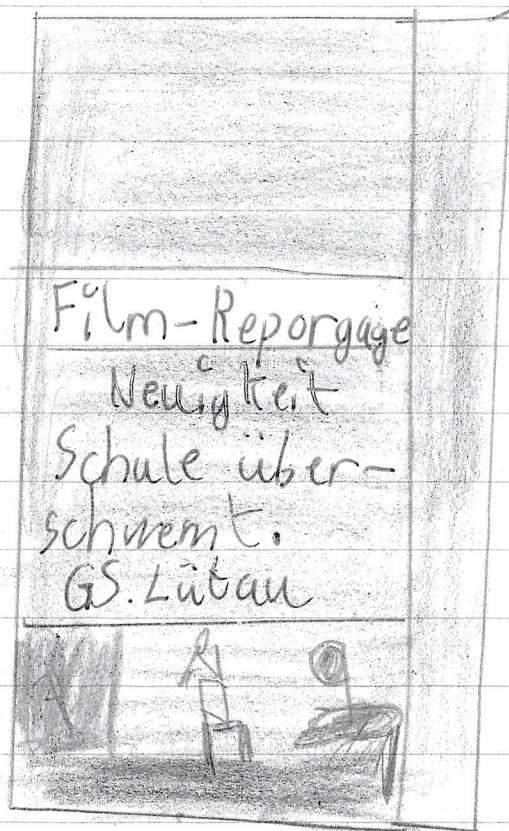 Film-Reporgage
Neuigkeit
Schule über-
schwemt.
GS. Lütau